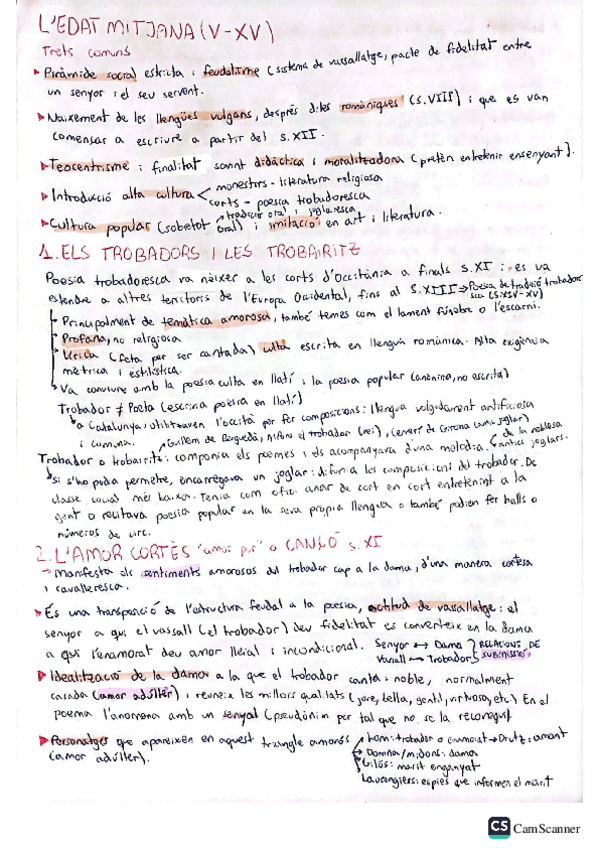 L'EDAT MITJANA (V-XV)
Trets comuns
Piràmide social estricta i feudalisme (sistema de vassallatge, pacte de fidelitat entre
un senyor i el seu servent.
Naixement de les llengües vulgars, després dites romàniques (s.VIII) i que es van
començar a escriure a partir del s.XII.
Teocentrisme i finalitat sovint didàctica i moralitzadora (pretén entretenir ensenyant).
Introducció alta cultura monestirs - literatura religiosa
corts - poesia trobadoresca
Cultura popular (sobretot oral) i imitació en art i literatura.
tradició oral i joglaresca
1. ELS TROBADORS I LES TROBAIRITZ
Poesia trobadoresca va nàixer a les corts d'Occitània a finals s.XI i es va
estendre a altres territoris de l'Europa Occidental, fins al s.XIII → Poesia de tradició trobador
sca (s.XIV-XV)
Principalment de temàtica amorosa, també temes com el lament fúnebre o l'escarni.
Profana, no religiosa
Lírica (feta per ser cantada) culta escrita en llengua romànica. Alta exigència
mètrica i estilística.
Va conviure amb la poesia culta en llatí i la poesia popular (anònima, no escrita)
Trobador ≠ Poeta (escrivia poesia en llatí)
a Catalunya: utilitzaven l'occità per fer composicions: llengua volgudament artificiosa
i comuna. Guillem de Berguedà, Alfons el trobador (rei), Cerverí de Girona (antic joglar)
de la noblesa
antics joglars.
Trobador o trobairitz: componia els poemes i els acompanyava d'una melodia.
si s'ho podia permetre, encarregava un joglar: difonia les composicions del trobador. De
classe social més baixa. Tenia com ofici anar de cort en cort entretenint a la
gent o recitava poesia popular en la seva pròpia llengua o també podien fer balls o
números de circ.
2. L'AMOR CORTÈS "amor pur" o CANÇÓ s.XI
Manifesta els sentiments amorosos del trobador cap a la dama, d'una manera cortesa
i cavalleresca.
És una transposició de l'estructura feudal a la poesia, actitud de vassallatge: el
senyor a qui el vassall (el trobador) deu fidelitat es converteix en la dama
a qui l'enamorat deu amor lleial i incondicional. Senyor ↔ Dama RELACIONS DE
Vassall ↔ Trobador SUBMISSIÓ
Idealització de la dama a la que el trobador canta: noble, normalment
casada (amor adúlter) i reuneix les millors qualitats (jove, bella, gentil, virtuosa, etc) En el
poema l'anomena amb un senyal (pseudònim per tal que no se la reconegui)
Personatges que apareixen en aquest triangle amorós hom: trobador o enamorat → Drutz: amant
(amor adúlter). Domna/midons: dama
Gilós: marit enganyat
Lausengiers: espies que informen el marit
CS CamScanner